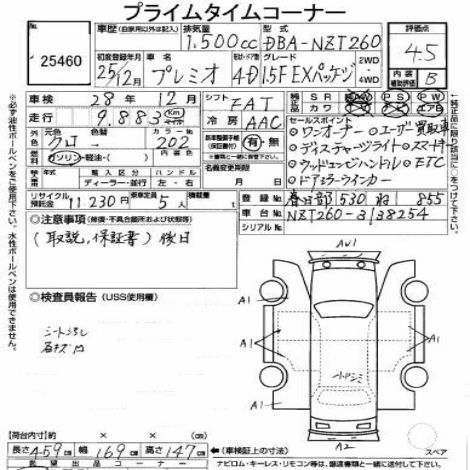 プライムタイムコーナー
25460
車歴 (自家用以外は記入) 排気量 1,500cc 型式 DBA-NZT260 評価点
初度登録年月 25年12月 車名 プレミオ 形状・ドア数 4D グレード 1.5F EXパッケージ 2WD 4WD 4.5
内装補助評価 B
車検 28年 12月 シフト FAT 純正 AW PS PW
走行 9,883 Km 冷房 AAC カワ
セールスポイント
外色 元色 クロ 色替 カラーNo 202 有・無
○ワンオーナー ○ユーザー買取車
燃料 ガソリン・軽油・( ) 乗車定員 5人
○ディスチャージライト ○スマートキー
輸入区分 ディーラー・並行 ハンドル 左・右
名義変更期限 月 日
○ウッドコンビハンドル ○ETC
リサイクル預託金 11,230円 積載量
○ドアミラーウインカー
登録No 春日部 530 ね 855
○注意事項 (修復・不具合箇所および状態等)
車台No NZT260-3138254
シリアルNo
(取説、保証書) 後日
○検査員報告 (USS使用欄)
シートコゲ
石キズ凹
AW1
A1
A1
A1
A1
A2
スペア
【荷台内寸】 長 cm 幅 cm 高 cm
長さ 459 幅 169 高さ 147 cm (車検証上の寸法)
希望出品コーナー
ナビロム・キーレス・リモコン等は、譲渡書類と一緒に送付して下さい。
※必ず油性ボールペンをご使用下さい。水性ボールペンは使用できません。